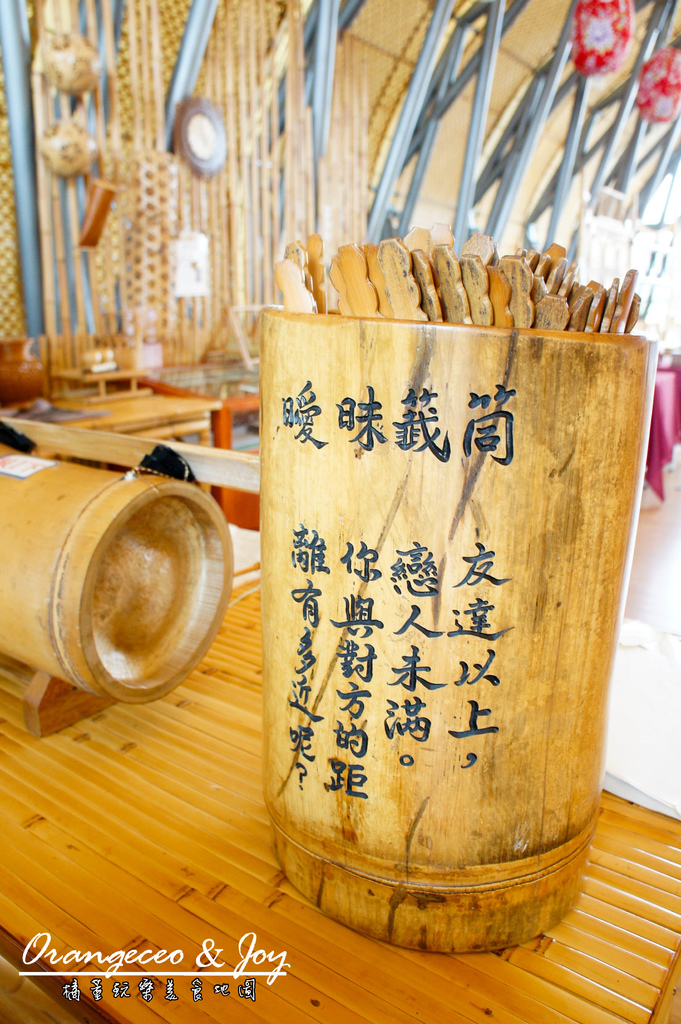 曖昧籤筒
友達以上，
戀人未滿。
你與對方的距
離有多近呢？
Orangeceo & Joy
橘童玩樂美食地圖